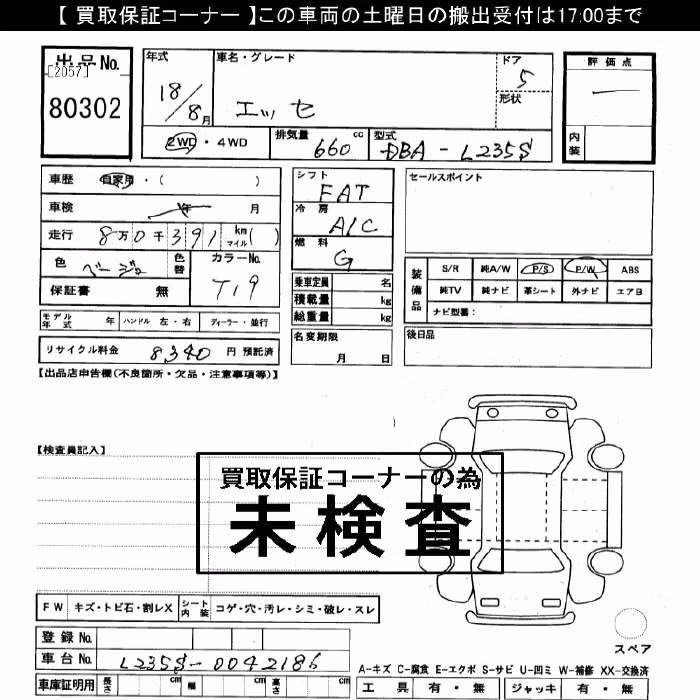 【 買取保証コーナー 】この車両の土曜日の搬出受付は17:00まで
出品No.
[2057]
80302
年式
18/8月
車名・グレード
エッセ
ドア
5
形状
評価点
―
内装
2WD・4WD
排気量
660 cc
型式
DBA-L235S
車歴 自家用・( )
車検 年 月
走行 8万0千391 km マイル( )
色 ベージュ 色替
カラーNo.
T19
保証書 無
モデル年式 年 ハンドル 左・右 ディーラー・並行
リサイクル料金 8340 円 預託済
シフト
FAT
冷房
A/C
燃料
G
乗車定員 名
積載量 kg
総重量 kg
名変期限
月 日
セールスポイント
装備品
S/R 純A/W P/S P/W ABS
純TV 純ナビ 革シート 外ナビ エアB
ナビ型番:
後日品
【出品店申告欄(不良箇所・欠品・注意事項等)】
【検査員記入】
買取保証コーナーの為
未検査
FW キズ・トビ石・割レX シート内装 コゲ・穴・汚レ・シミ・破レ・スレ
登録No.
車台No. L235S-0042186
車庫証明用 長さ cm 幅 cm 高さ cm
スペア
A-キズ C-腐食 E-エクボ S-サビ U-凹ミ W-補修 XX-交換済
工具 有・無 ジャッキ 有・無